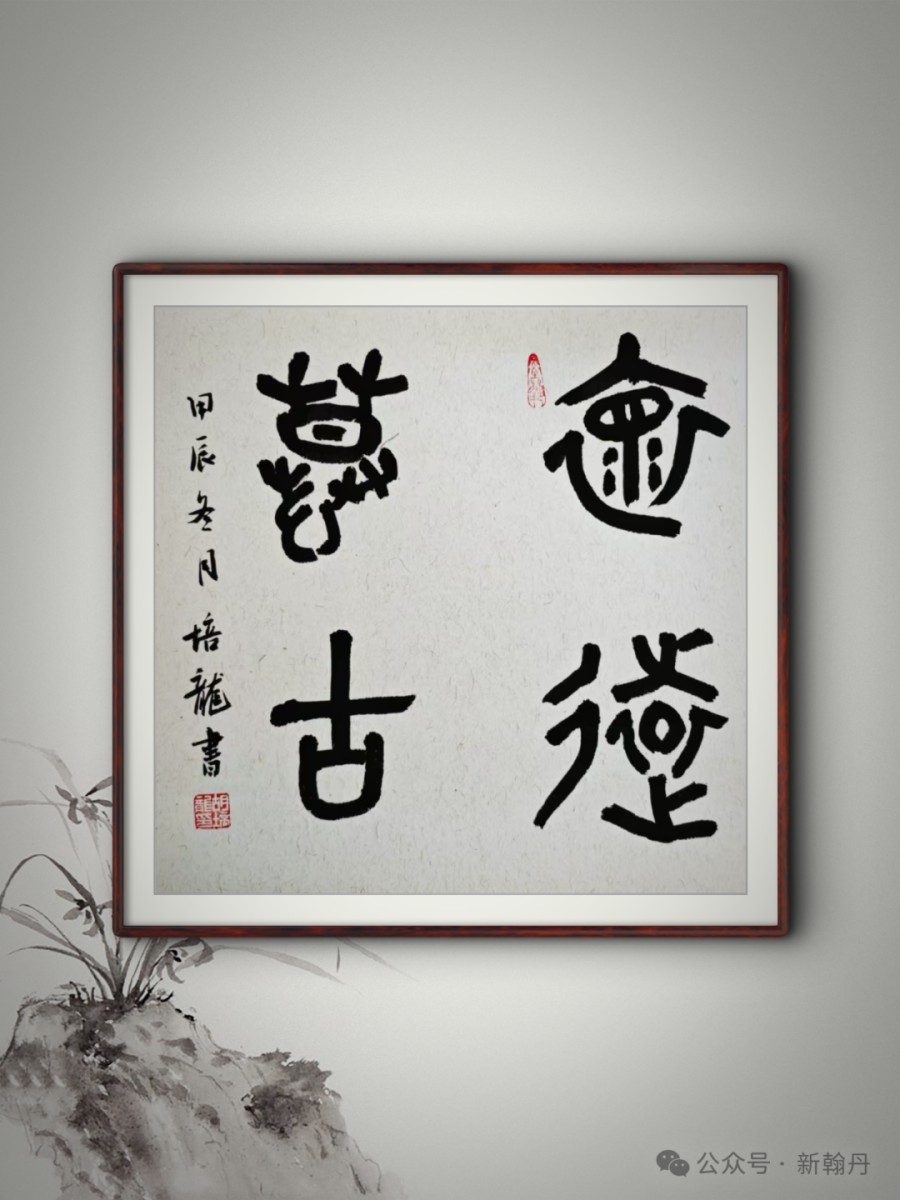 懷遠
慕古
甲辰冬月培龍書
公众号·新翰丹